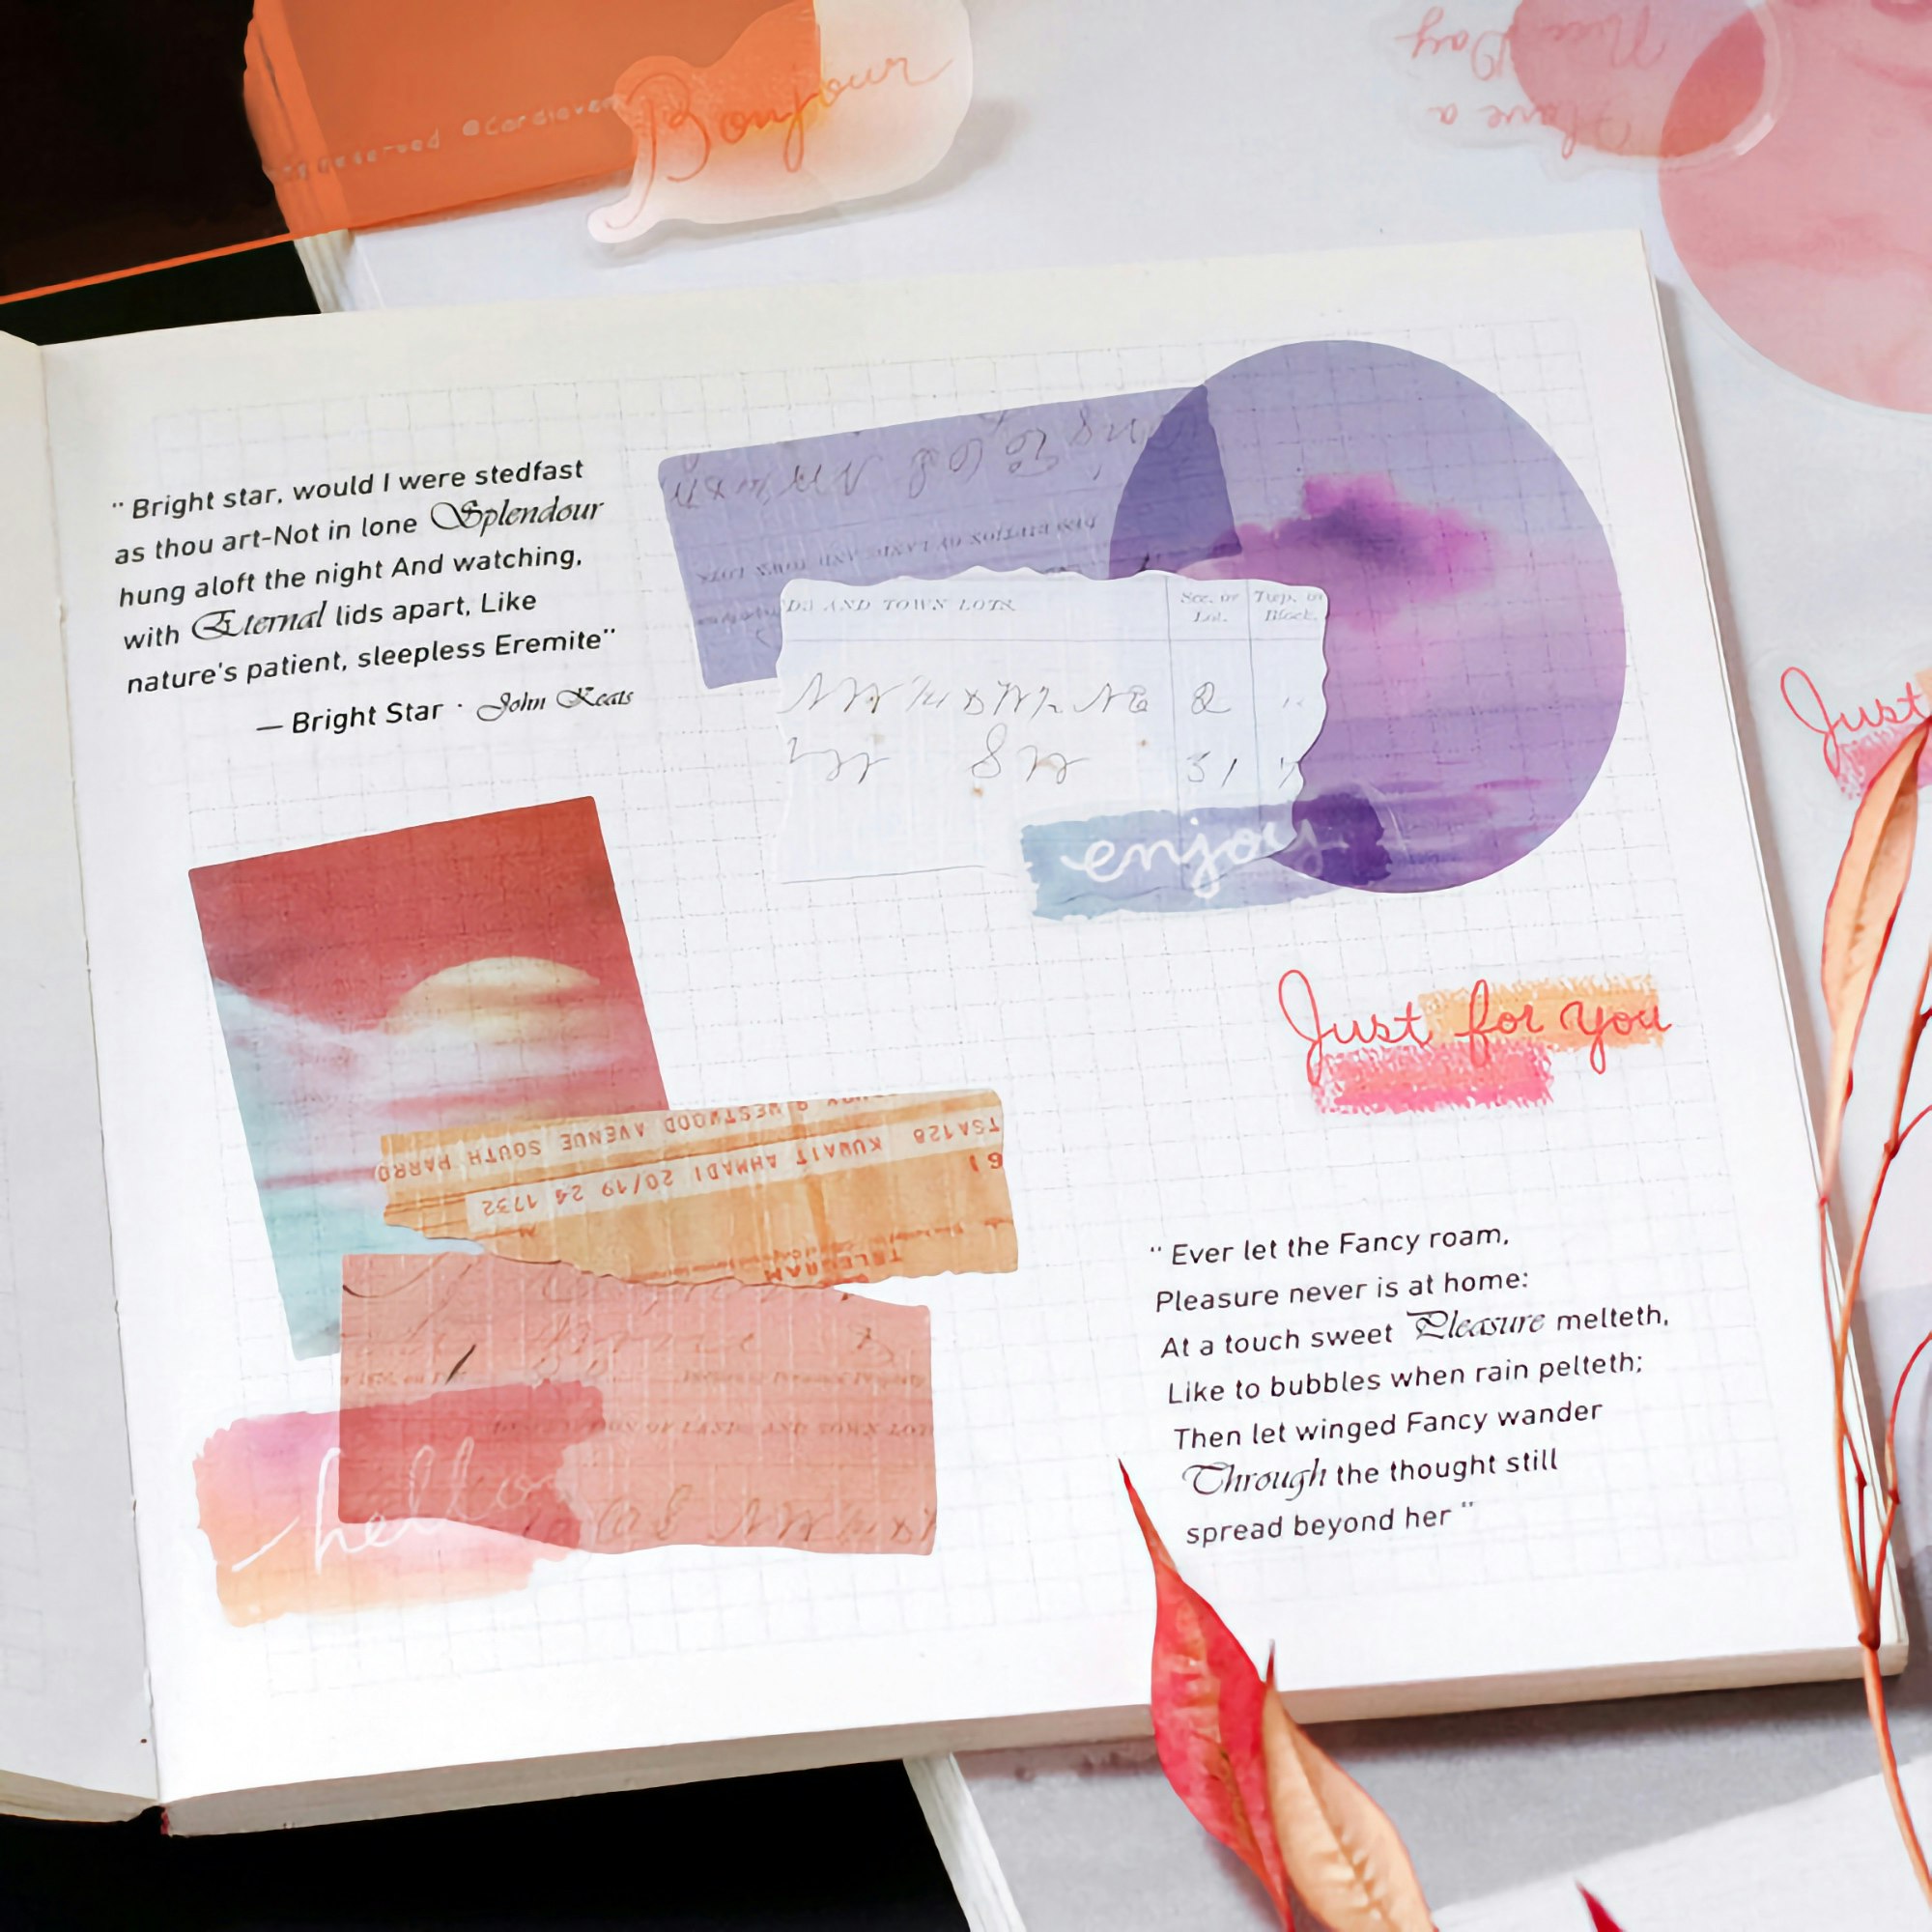 Bonjour
Have a
Nice Day
“ Bright star, would I were stedfast
as thou art-Not in lone Splendour
hung aloft the night And watching,
with Eternal lids apart, Like
nature's patient, sleepless Eremite”
— Bright Star · John Keats
DS AND TOWN LOTS
Sec. or
Lot.
Block.
31
enjoy
Just
Just for you
TSA128 KUWAIT AHMADI 20/19 24 1732
WESTWOOD AVENUE SOUTH HARRO
TELEGRAM
hello
“ Ever let the Fancy roam,
Pleasure never is at home:
At a touch sweet Pleasure melteth,
Like to bubbles when rain pelteth;
Then let winged Fancy wander
Through the thought still
spread beyond her ”